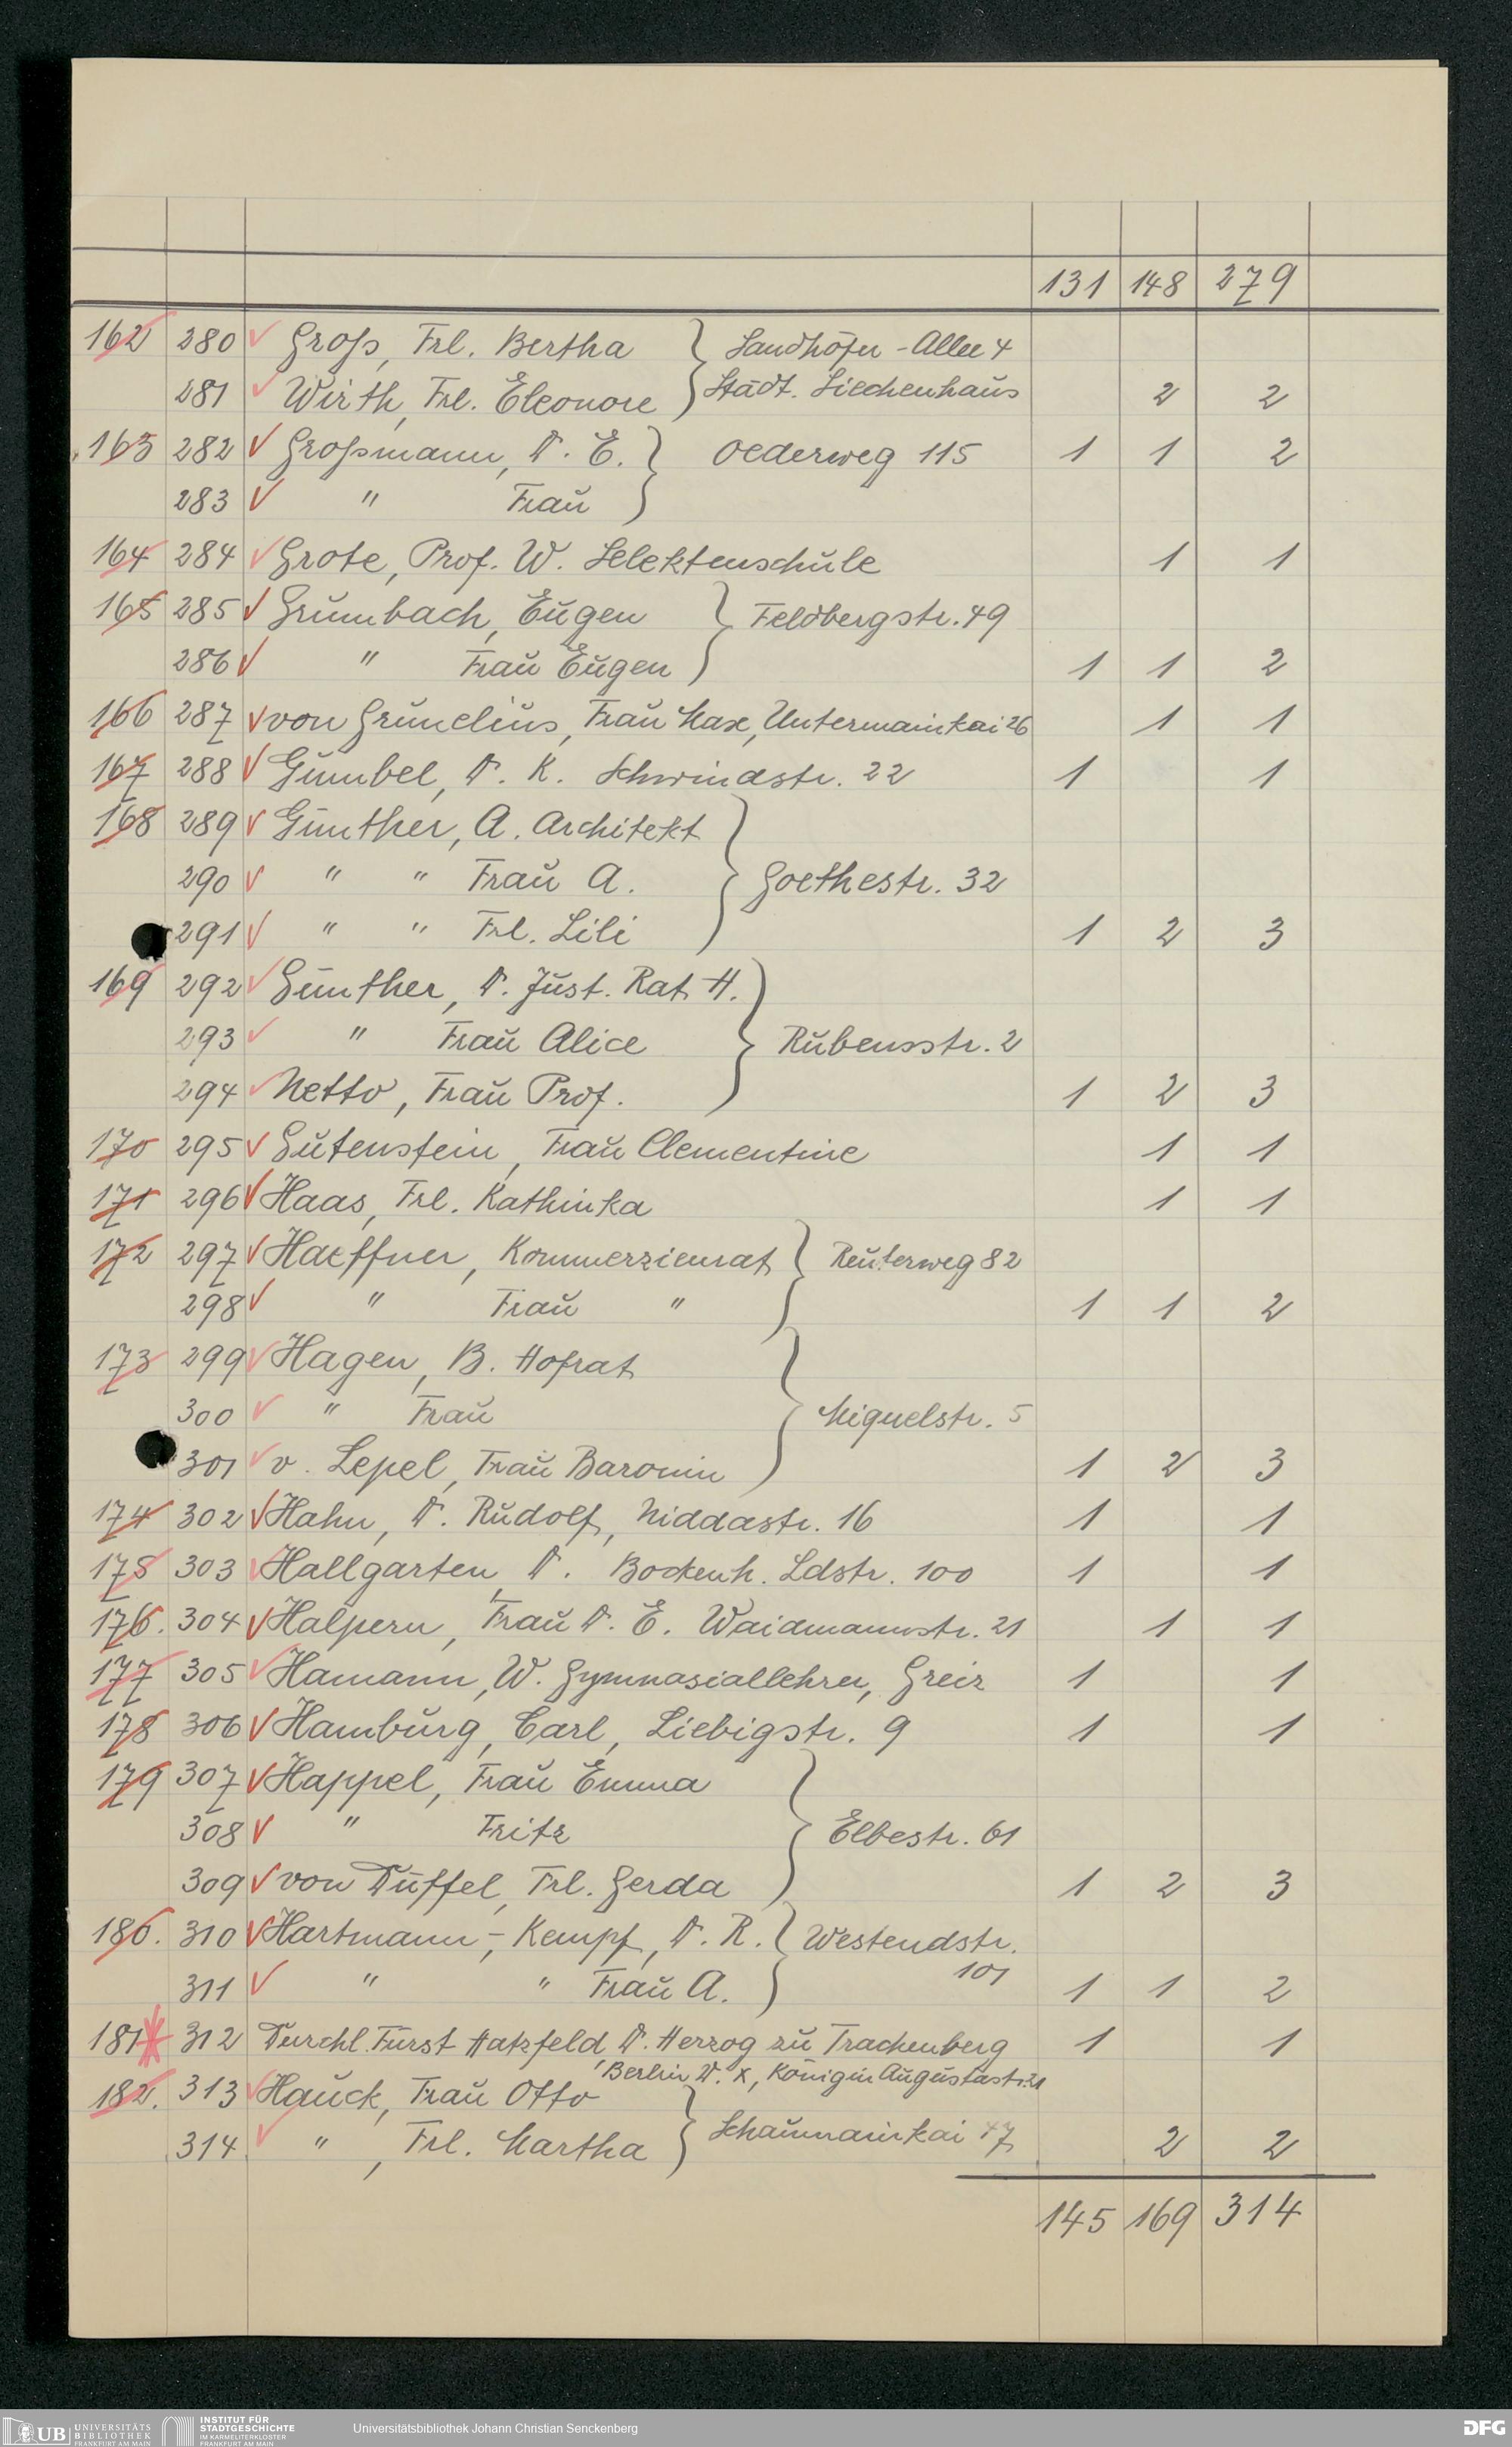 131 148 279
162 280 Groß, Frl. Bertha } Sandhöfer-Allee 4
281 Wirth, Frl. Eleonore } Städt. Siechenhaus 2 2
163 282 Großmann, Dr. E. } Oederweg 115 1 1 2
283 " Frau
164 284 Grote, Prof. W. Selektenschule 1 1
165 285 Grumbach, Eugen } Feldbergstr. 49
286 " Frau Eugen 1 1 2
166 287 von Grunelius, Frau Max, Untermainkai 26 1 1
167 288 Gumbel, Dr. K. Schwindstr. 22 1 1
168 289 Günther, A. Architekt
290 " " Frau A. } Goethestr. 32
291 " " Frl. Lili 1 2 3
169 292 Günther, Dr. Just. Rat H.
293 " Frau Alice } Rubensstr. 2
294 Netto, Frau Prof. 1 2 3
170 295 Gutenstein, Frau Clementine 1 1
171 296 Haas, Frl. Kathinka 1 1
172 297 Haeffner, Kommerzienrat } Reuterweg 82
298 " Frau " 1 1 2
173 299 Hagen, B. Hofrat
300 " Frau } Miquelstr. 5
301 v. Lepel, Frau Baronin 1 2 3
174 302 Hahn, Dr. Rudolf, Niddastr. 16 1 1
175 303 Hallgarten, Dr. Bockenh. Ldstr. 100 1 1
176. 304 Halpern, Frau Dr. E. Waidmannstr. 21 1 1
177 305 Hamann, W. Gymnasiallehrer, Greiz 1 1
178 306 Hamburg, Carl, Liebigstr. 9 1 1
179 307 Happel, Frau Emma
308 " Fritz } Elbestr. 61
309 von Düffel, Frl. Gerda 1 2 3
180. 310 Hartmann-, Kempf, Dr. R. } Westendstr.
311 " " Frau A. 101 1 1 2
181 312 Durchl. Fürst Hatzfeld Dr. Herzog zu Trachenberg 1 1
Berlin W. X, Königin Augustastr. 21
182. 313 Hauck, Frau Otto
314 " , Frl. Martha } Schaumainkai 47 2 2
145 169 314
UB UNIVERSITÄTS
BIBLIOTHEK
FRANKFURT AM MAIN
INSTITUT FÜR
STADTGESCHICHTE
IM KARMELITERKLOSTER
FRANKFURT AM MAIN
Universitätsbibliothek Johann Christian Senckenberg
DFG